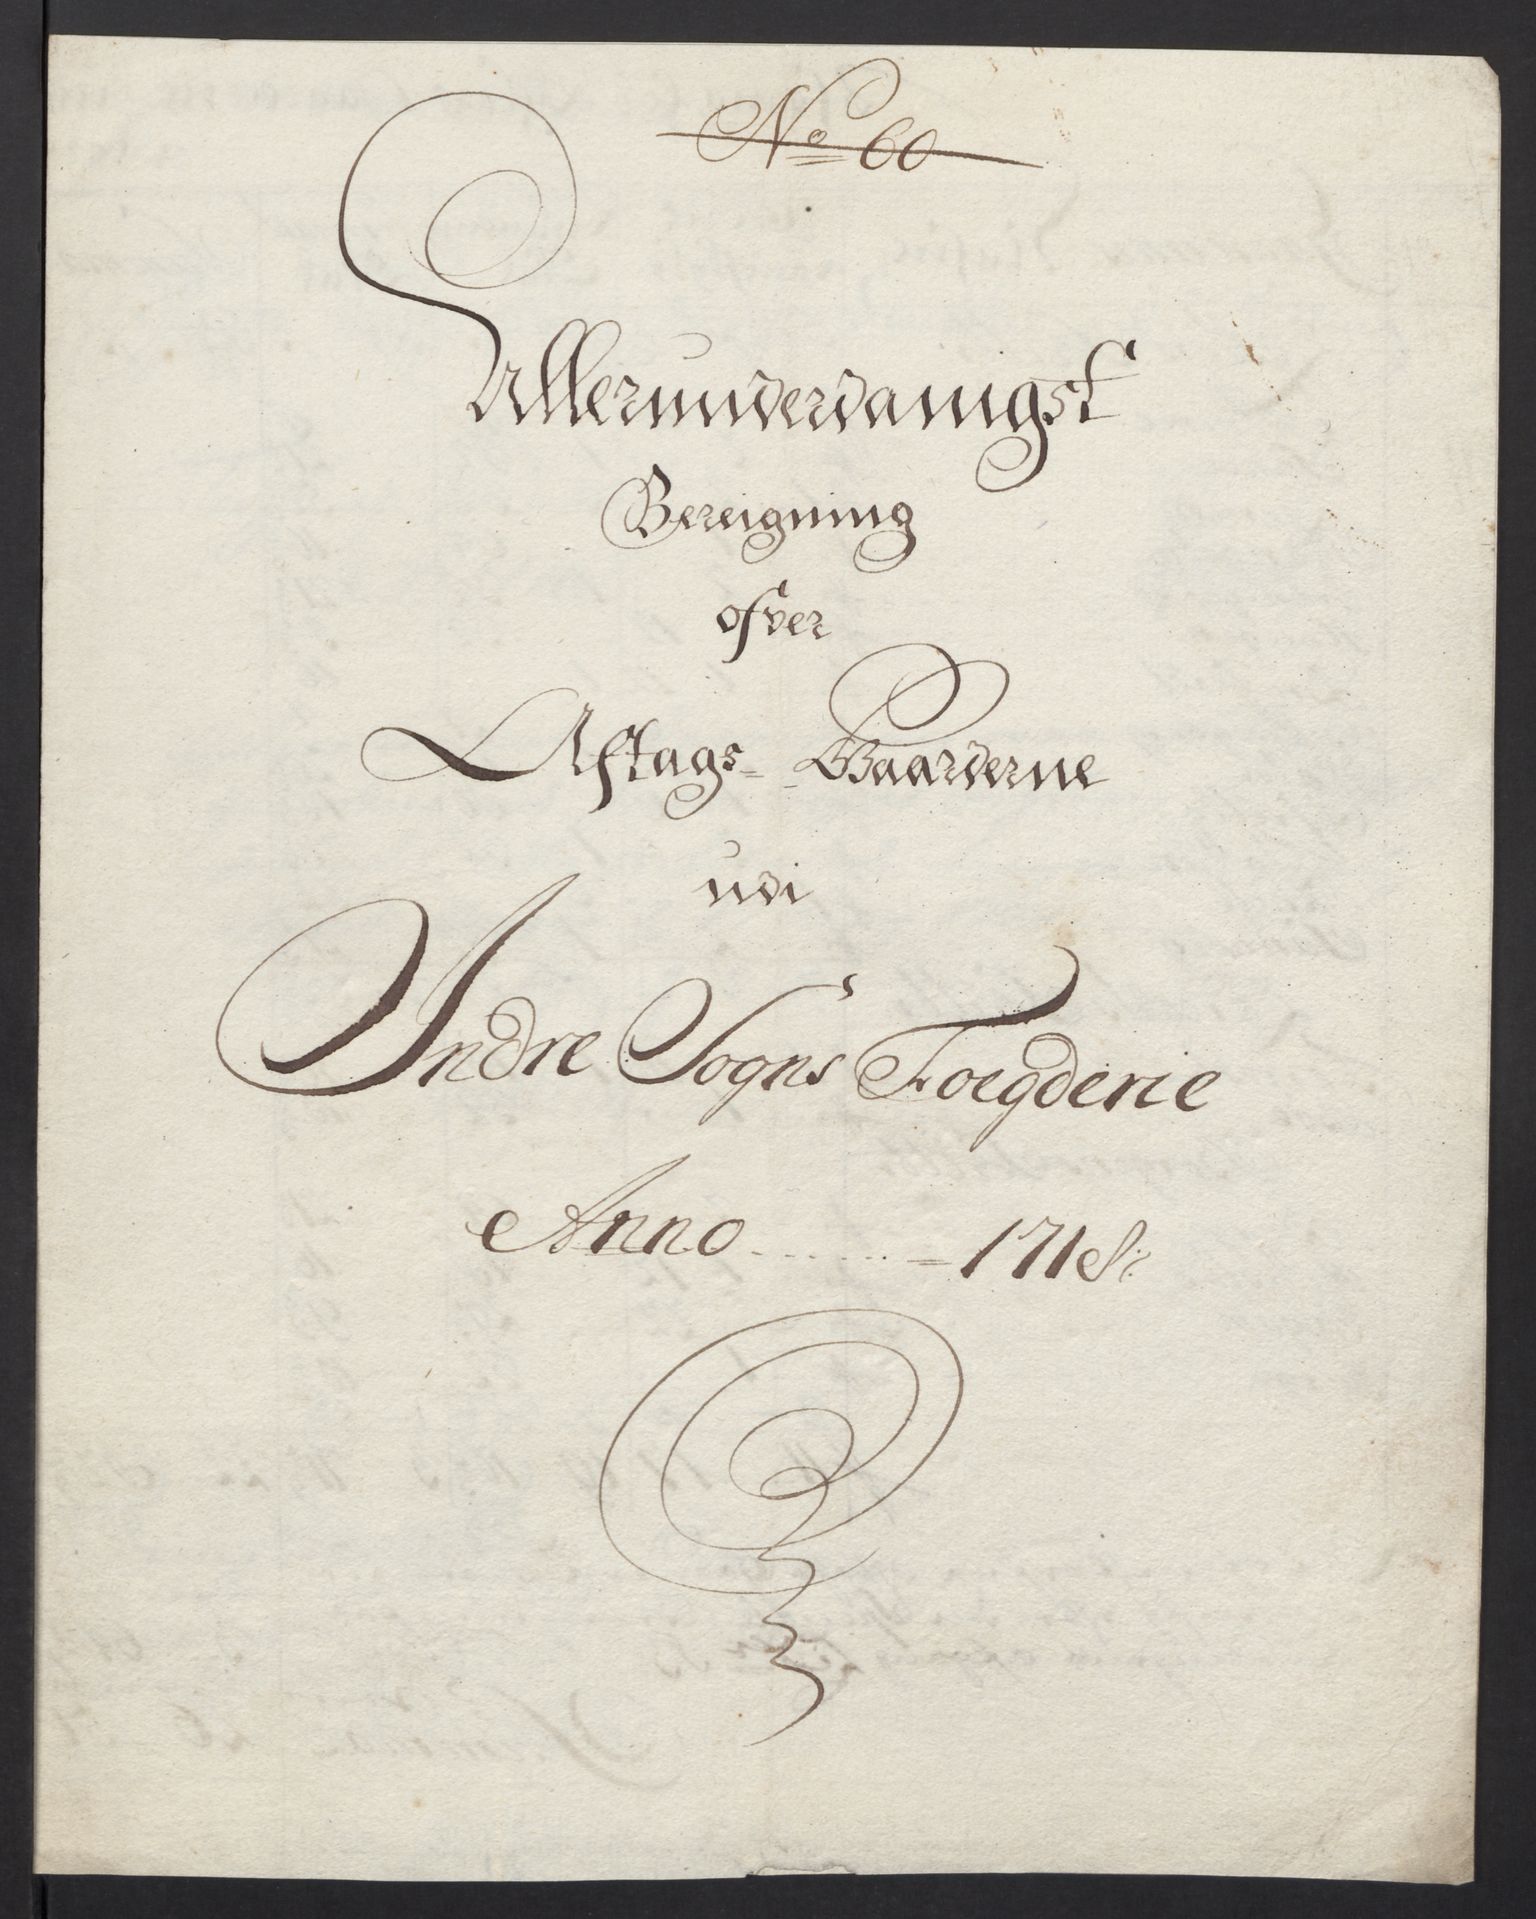 No 60
Allerunderdanigst
Bereigning
ofver
Aftags- Gaarderne
udi
Indre Sogns Foegderie
Anno ....... = 1718: